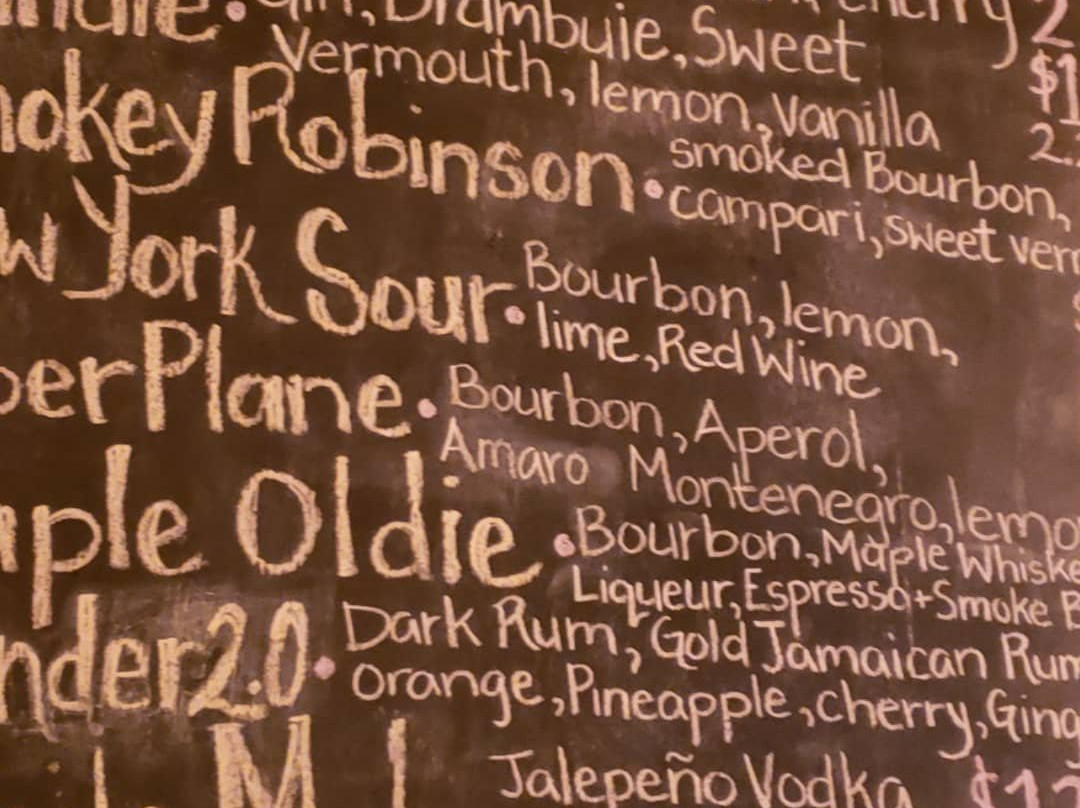 Gin, Drambuie, Sweet
Vermouth, lemon, Vanilla
okey Robinson • smoked Bourbon,
campari, sweet ver
w York Sour • Bourbon, lemon,
lime, Red Wine
perPlane • Bourbon, Aperol,
Amaro Montenegro, lemo
ple Oldie • Bourbon, Maple Whiske
Liqueur, Espresso + Smoke B
nder 2.0 • Dark Rum, Gold Jamaican Rum
orange, Pineapple, cherry, Ging
Jalepeño Vodka